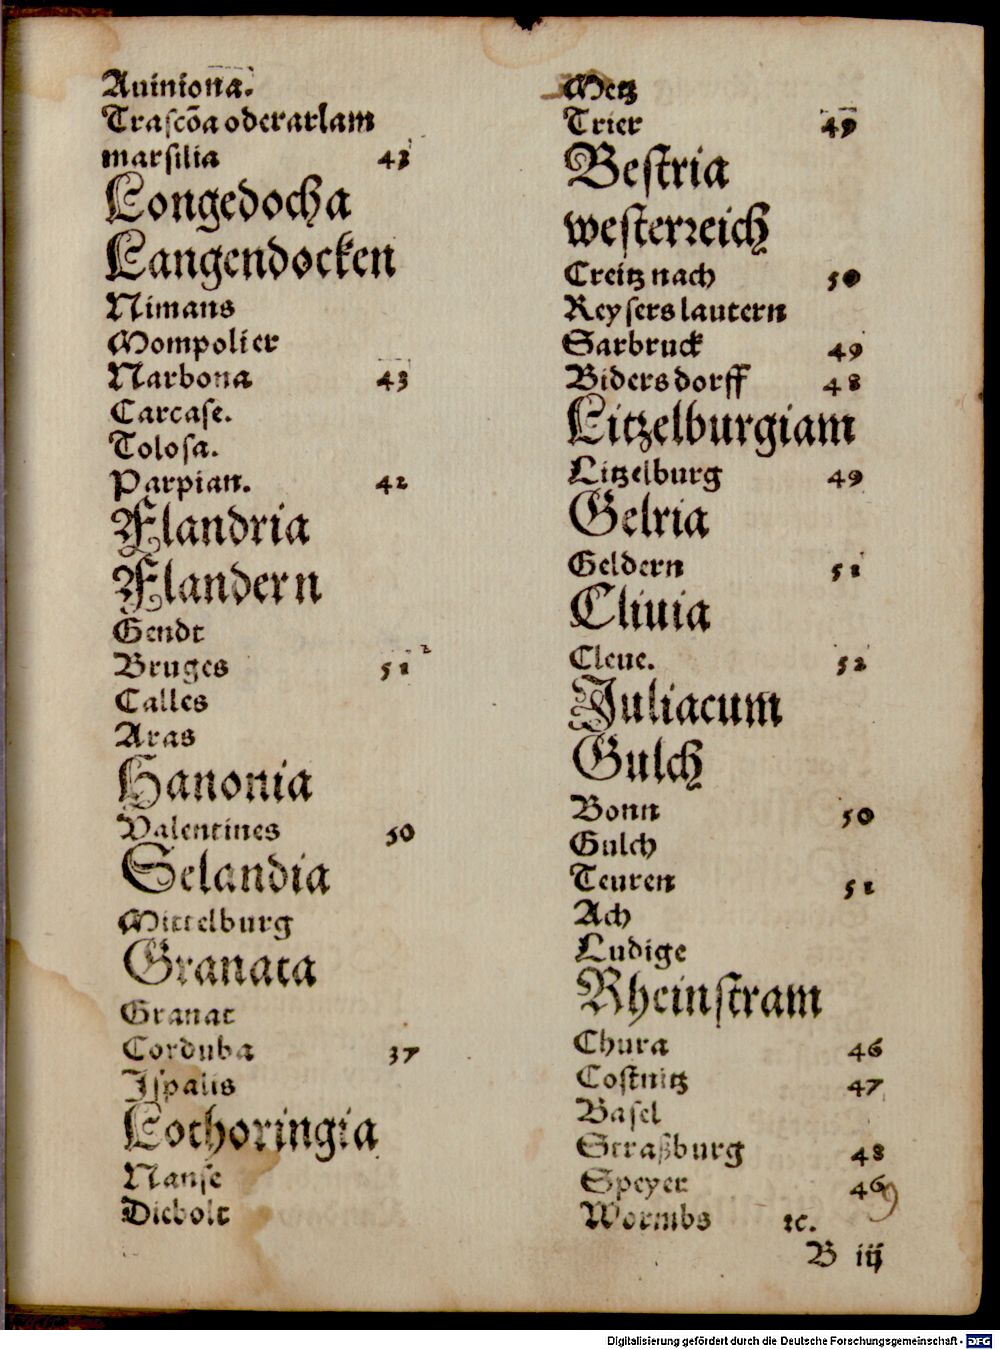 Auiniona.
Trascõa oder arlam
marsilia 43
Longedocha
Langendocken
Nimans
Mompolier
Narbona 43
Carcase.
Tolosa.
Parpian. 42
Flandria
Flandern
Gendt
Bruges 51 2
Calles
Aras
Hanonia
Valentines 50
Selandia
Mittelburg
Granata
Granat
Corduba 37
Jspalis
Lothoringia
Nanse
Diebolt
Metz
Trier 49
Bestria
westerreich
Creitznach 50
Keysers lautern
Sarbruck 49
Bidersdorff 48
Litzelburgiam
Litzelburg 49
Gelria
Geldern 51
Cliuia
Cleue. 52
Juliacum
Gulch
Bonn 50
Gulch
Teuren 51
Ach
Ludige
Rheinstram
Chura 46
Costnitz 47
Basel
Straßburg 48
Speyer 46 9
Wormbs ꝛc.
B iij
Digitalisierung gefördert durch die Deutsche Forschungsgemeinschaft - DFG